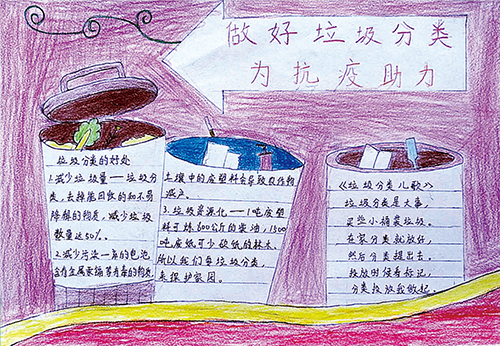 做好垃圾分类
为抗疫助力
垃圾分类的好处
1.减少垃圾量——垃圾分
类，去掉能回收的和不易
降解的物质，减少垃圾
数量达50%。
2.减少污染一年的电池
含有金属汞镉等有毒的物质
土壤中的废塑料会导致农作物
减产。
3.垃圾资源化——1吨废塑
料可炼600公斤的柴油，1500
吨废纸可少砍纸的林木。
所以我们要垃圾分类，
来保护家园。
《垃圾分类儿歌》
垃圾分类是大事，
买些小桶装垃圾。
在家分类就放好，
然后分类提出去。
投放时候看标记，
分类投放我做起。